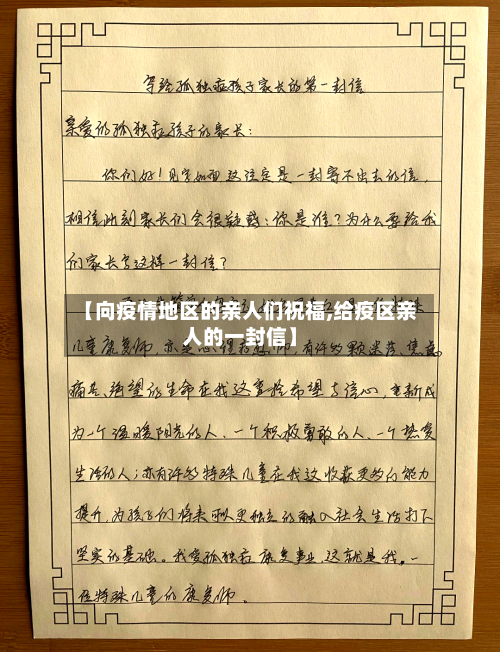 写给孤独症孩子家长的第一封信
亲爱的孤独症孩子的家长：
你们好！见字如面 这注定是一封寄不出去的信，
相信此刻家长们会很疑惑：你是谁？为什么要给我
们家长写这样一封信？
【向疫情地区的亲人们祝福,给疫区亲
人的一封信】
儿童康复师，亦是心理 师，有许多颗迷茫、焦虑
痛苦、绝望的生命在我这拿捡希望与信心，重新成
为一个温暖阳光的人、一个积极勇敢的人、一个热爱
生活的人；亦有许多特殊儿童在我这收获更多的能力
提升，为孩子们将来 更独立的融入社会生活打下
坚实的基础。我爱孤独症康复事业，这就是我，一
位特殊儿童的康复师。